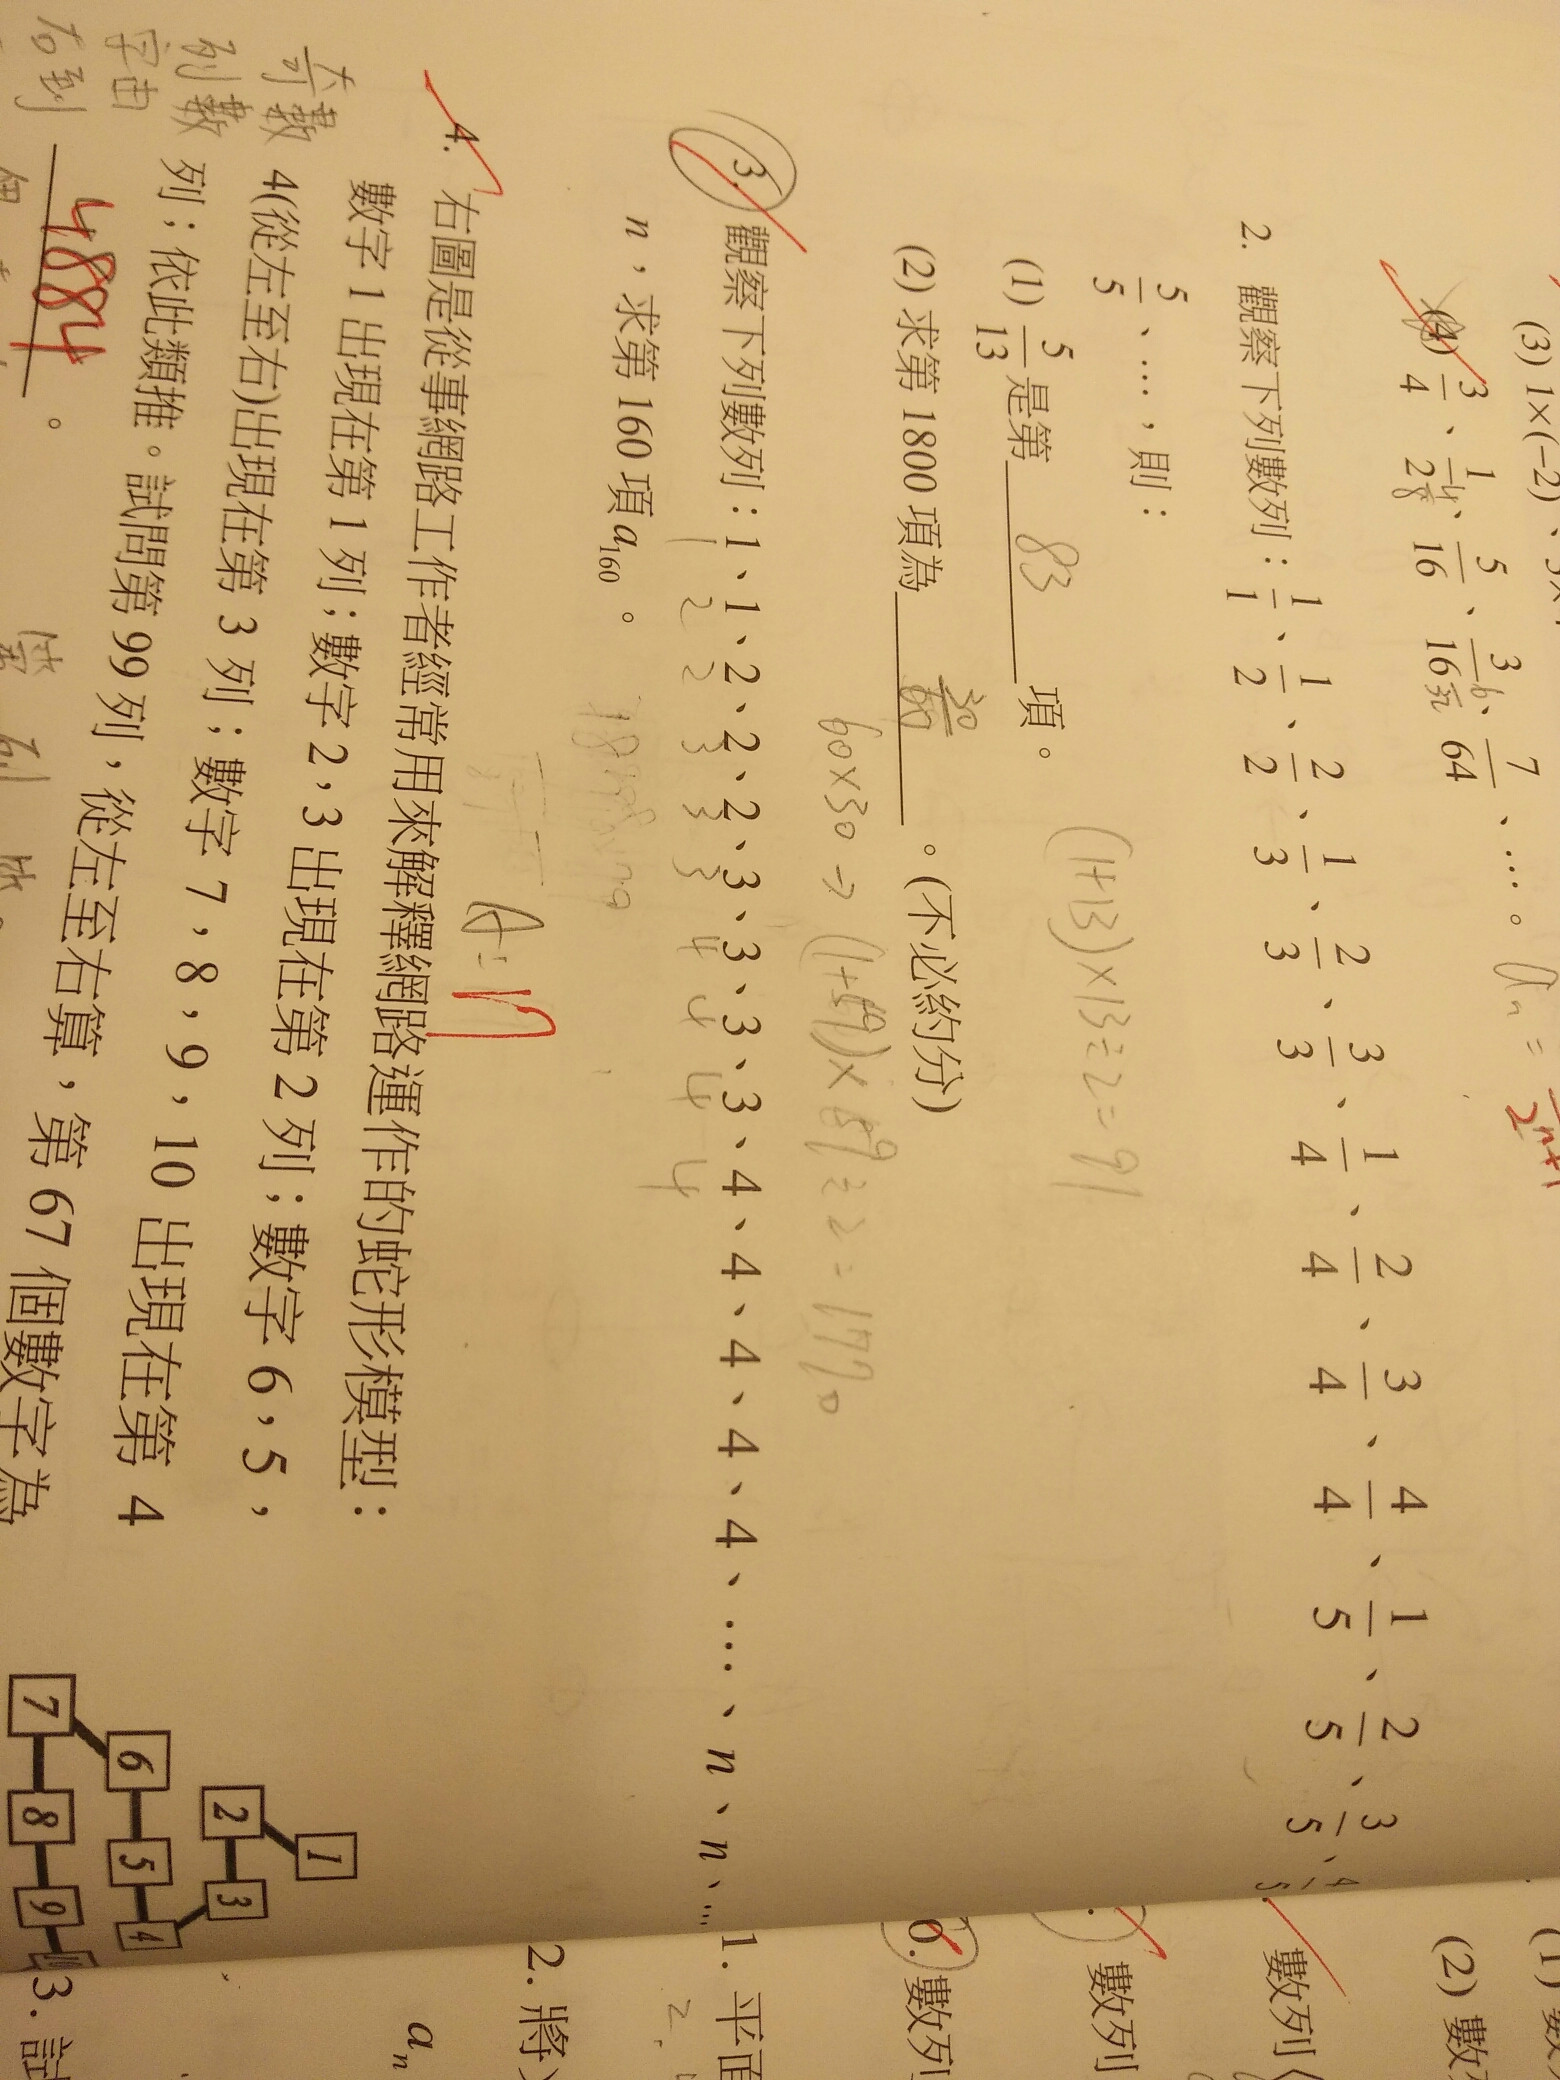 (3) 1×(−2)、3×
(4) 3/4、1/2、5/16、3/16、7/64、…。
2. 觀察下列數列：1/1、1/2、2/2、1/3、2/3、3/3、1/4、2/4、3/4、4/4、1/5、2/5、3/5、4/5、
5/5、…，則：
(1) 5/13是第 83 項。 (1+13)×13÷2=91
(2) 求第 1800 項為 30/60 。(不必約分)
60×30→(1+59)×59÷2=1770
3. 觀察下列數列：1、1、2、2、2、3、3、3、3、4、4、4、4、4、…、n、n、…
1 2 2 3 3 3 4 4 4 4
n，求第 160 項a160。
A=17
4. 右圖是從事網路工作者經常用來解釋網路運作的蛇形模型：
數字 1 出現在第 1 列；數字 2，3 出現在第 2 列；數字 6，5，
4(從左至右)出現在第 3 列；數字 7，8，9，10 出現在第 4
列；依此類推。試問第 99 列，從左至右算，第 67 個數字為
4884 。
奇數
列數
字由
右到
1
2 3
6 5 4
7 8 9 10
(1) 數
(2) 數
數列
數列
6. 數列
1. 平面
2. 將
an
3. 討